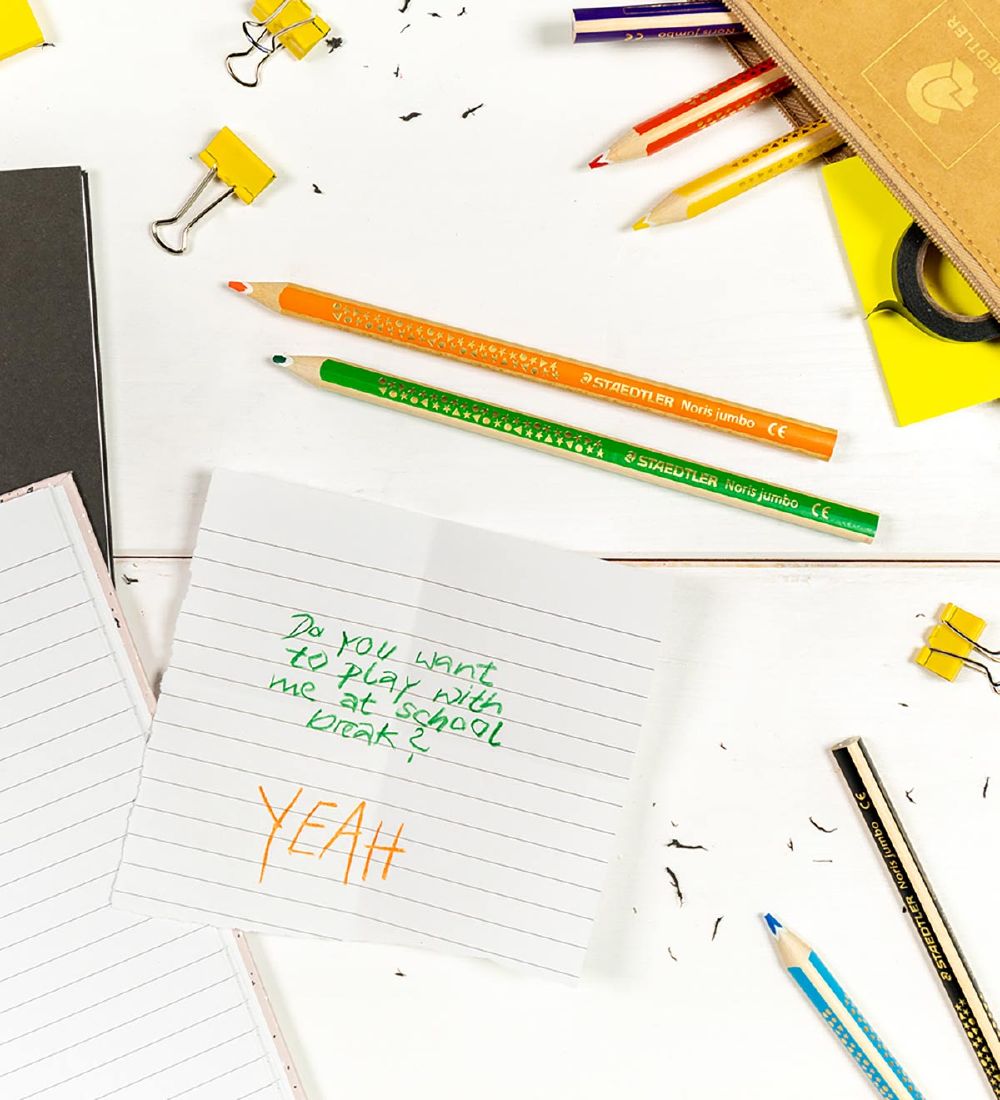 Noris jumbo CE
STAEDTLER
STAEDTLER Noris jumbo CE
STAEDTLER Noris jumbo CE
Do you want
to play with
me at school
break?
YEAH
STAEDTLER Noris jumbo CE